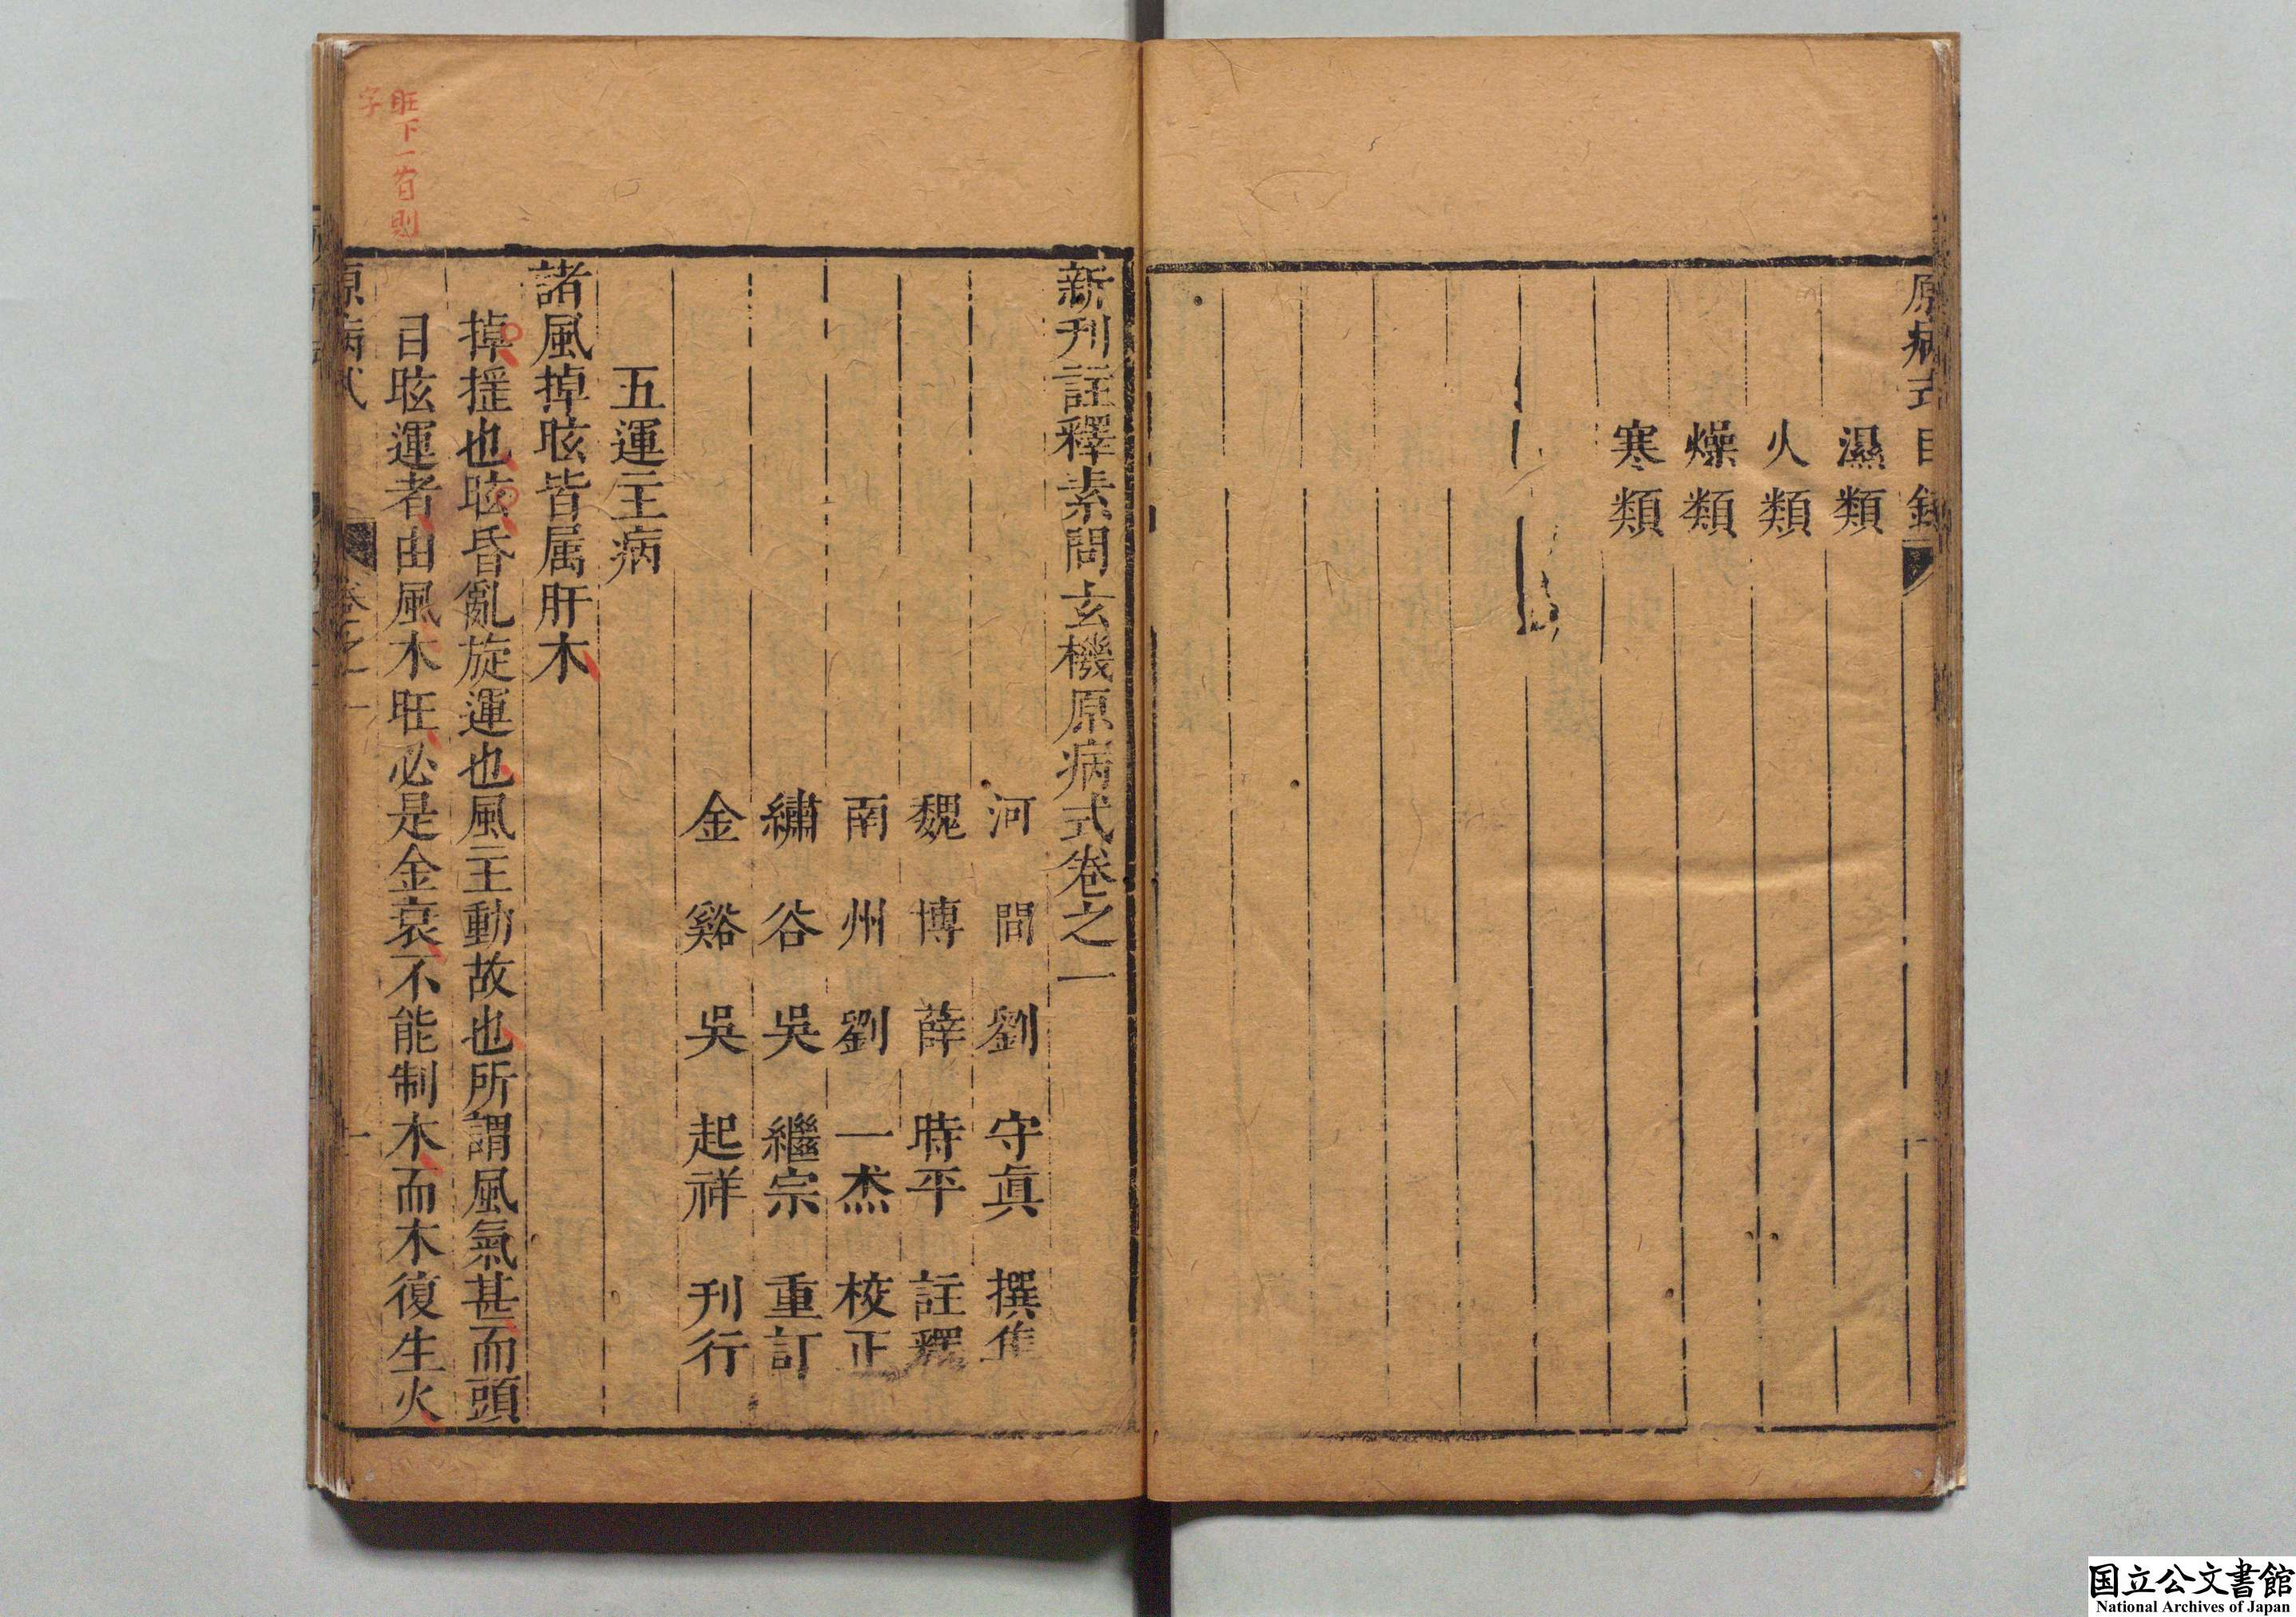 原病式目錄
濕類
火類
燥類
寒類
新刊註釋素問玄機原病式卷之一
河間劉守眞撰集
魏博薛時平註釋
南州劉一杰校正
繡谷吳繼宗重訂
金谿吳起祥刊行
五運主病
諸風掉眩皆属肝木
掉揺也眩昏亂旋運也風主動故也所謂風氣甚而頭
目眩運者由風木旺必是金衰不能制木而木復生火
原病式 卷之一 一
旺下一有則
字
国立公文書館
National Archives of Japan